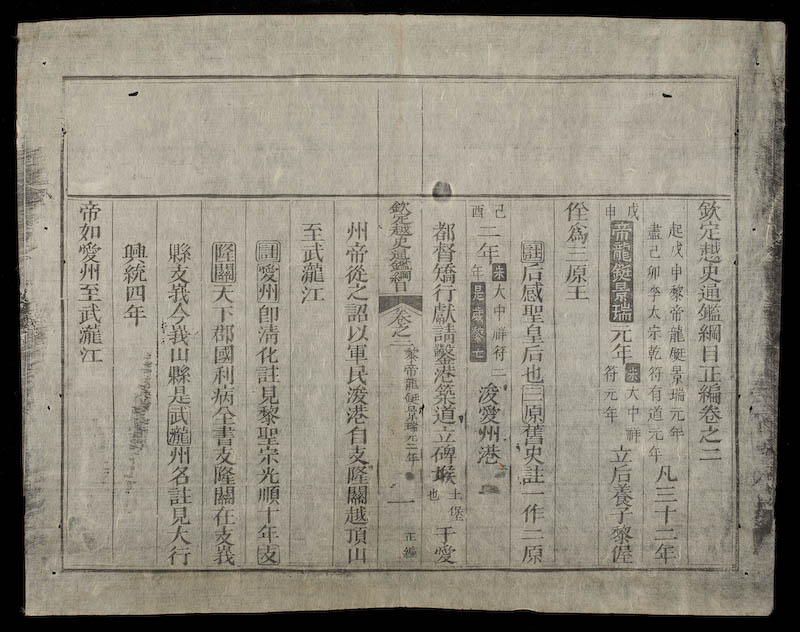 欽定越史通鑑綱目正編卷之二
起戊申黎帝龍鋌景瑞元年
盡己卯李太宗乾符有道元年
凡三十二年
戊申
帝龍鋌景瑞元年
宋大中祥
符元年
立后養子黎偓
佺為三原王
註后感聖皇后也三原舊史註一作二原
己酉
二年
宋大中祥符二
年是歲黎亡
浚愛州港
都督矯行獻請鑿港築道立碑堠
土堡
也
于愛
欽定越史通鑑綱目
卷之二
黎帝龍鋌景瑞元二年
一
正編
州帝從之詔以軍民浚港自支隆關越頂山
至武瀧江
註愛州卽清化註見黎聖宗光順十年支
隆關天下郡國利病全書支隆關在支義
縣支義今義山縣是武瀧州名註見大行
興統四年
帝如愛州至武瀧江